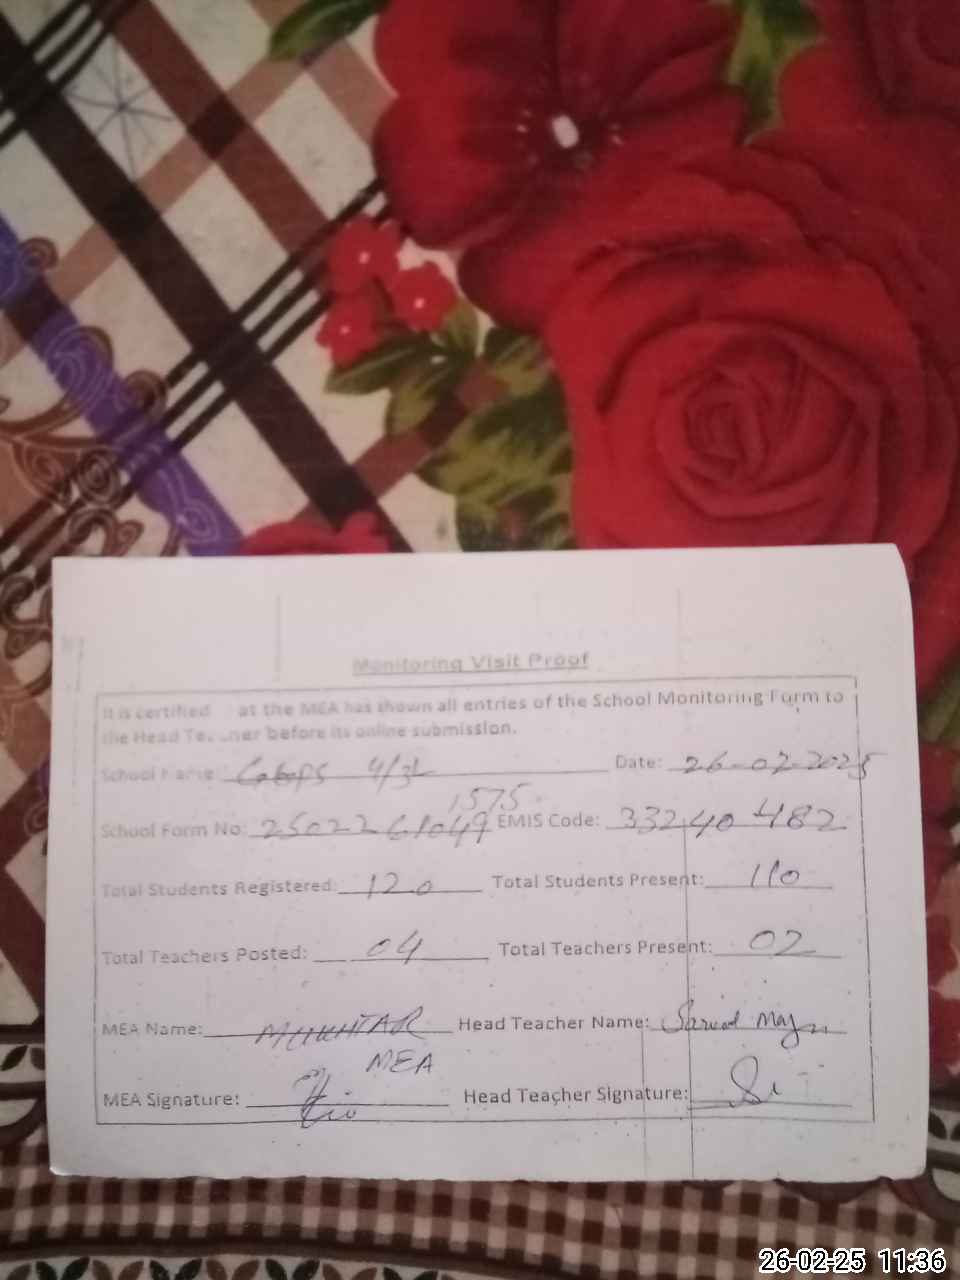 Monitoring Visit Proof
It is certified at the MEA has shown all entries of the School Monitoring Form to
the Head Teacher before its online submission.
School Name: GGPS 4/3L Date: 26-02-2025
1575
School Form No: 2502261049 EMIS Code: 33240482
Total Students Registered: 120 Total Students Present: 110
Total Teachers Posted: 04 Total Teachers Present: 02
MEA Name: MUKHTAR Head Teacher Name:
MEA
MEA Signature: Head Teacher Signature:
26-02-25 11:36